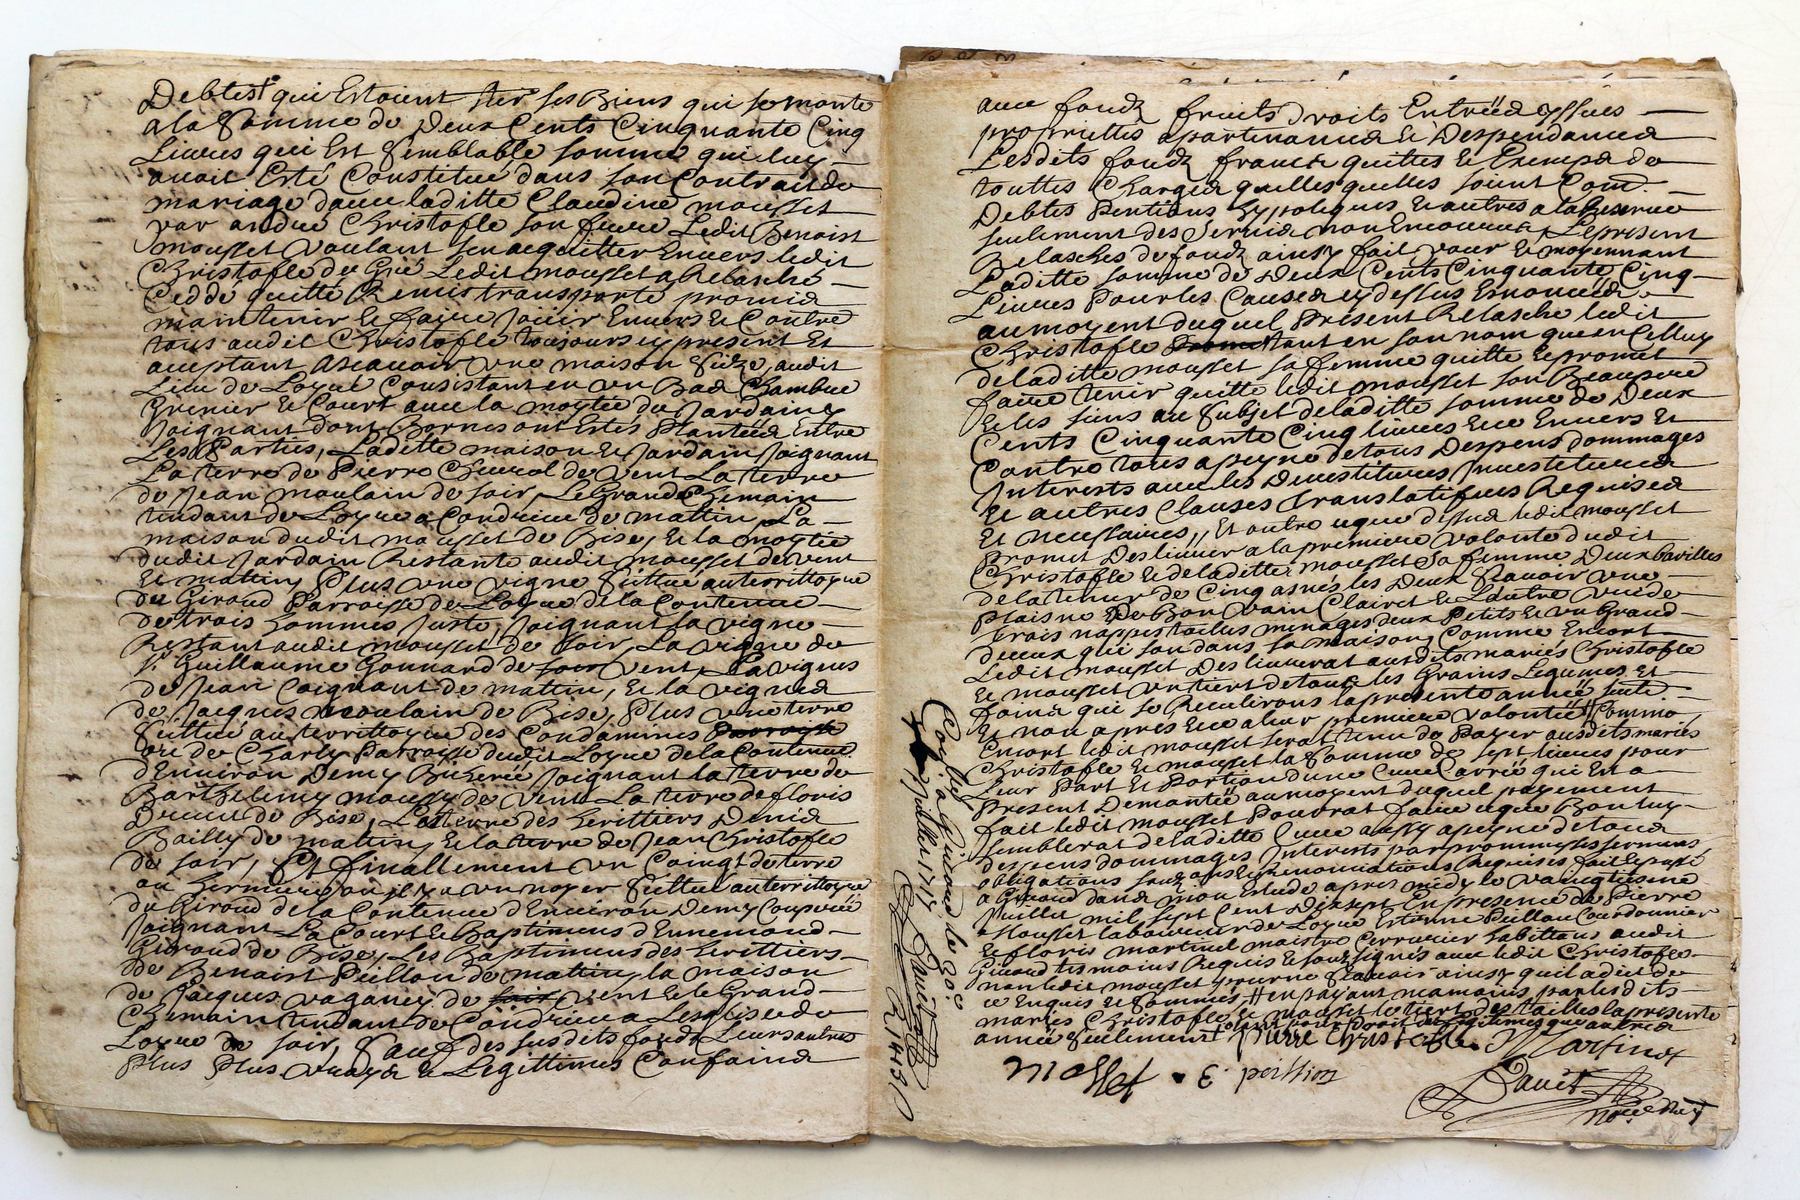 Debtes qui Estoient sur ses Biens qui se monte
a la Somme de Deux Cents Cinquante Cinq
Liures qui Est Semblable somme qui luy
auoit Esté Constitué dans son Contrait de
mariage dauec laditte Claudine mousset
par andré Christofle son frere Ledit Benoist
mousset voulant sen acquitter Enuers ledit
Christofle de Gré Ledit mousset a Relasché
Ceddé quitté Remis transporté promis
maintenir Et faire Jouir Enuers Et Contre
tous audit Christofle toujours cy present Et
aceptant ascauoir vne maison Size audit
Lieu de Loyre Consistant en vn Bas Chambre
Grenier Et Court auec la moytié du Jardain y
Joignant dont Bornes ont Estés Plantées Entre
Les Parties, Laditte maison Et Jardain Joignant
La terre de Pierre de Vent La terre
de Jean moulain de soir, Le Grand Chemain
tendant de Loyre a Condrieu de mattin, La
maison dudit mousset de Bise, Et la moytié
dudit Jardain Restante audit mousset de vent
Et mattin, Plus vne vigne Scittué au territtoyre
du Giraud Parroisse de Loyre de la Contenue
de trois hommes Juste, Joignant la vigne
Restant audit mousset de Soir, La vigne de
Sr Guillaume Gonnard de soir vent, La vignes
de Jean Coignant de mattin, Et la vignes
de Jacques moulain de Bise, Plus vne terre
Scittué au territtoyre des Condamines Parroisse
ou de Charly Parroisse dudit Loyre de la Contenue
dEnuiron Demy Bicherée Joignant la terre de
Barthelemy moussy de Vent La terre de floris
de Bise, La terre des heritiers Denis
Bailly de matin, Et la terre de Jean Christofle
de soir, Et finallement vn Coingt de terre
ou il y a vn noyer Scittué au territtoyre
du Giroud de la Contenue dEnuiron Demy Couperée
Joignant La Court Et Baptimens dEnnemond
Giroud de Bise, Les Baptimens des heritiers
de Benoist Peillon de mattin, la maison
de Jacques vaganey de soir vent Et le Grand
Chemain tendant de Condrieu a Lesglise de
Loyre de soir, Sauf des susdits fonds Leurs autres
Plus Plus vrays Et Legittimes Confains
auec fonds fruits Droits Entrées yssues
proprietés apartenances Et Despendances
Lesdits fonds francs quittes Et Exemps de
touttes Charges quelles quelles soient Com.
Debtes Pentions hypoteques Et autres a la Reserue
seulement des Seruis non Encourus, Le present
Relasches de fonds ainsy fait pour Et moyennant
Laditte somme de Deux Cents Cinquante Cinq
Liures Pour les Causes cy dessus Enoncées
au moyent duquel Present Relasche ledit
Christofle tant en son nom que en Celluy
de laditte mousset sa femme quitte Et promet
faire tenir quitte ledit mousset son Beaupere
Et les siens au Subjet de laditte somme de Deux
Cents Cinquante Cinq liures Et ce Enuers Et
Contre tous a peyne de tous Despens dommages
Interests auec les Deuestitures Inuestitures
Et autres Clauses Translatifues Requises
Et necessaires, Et outre ce que dessus ledit mousset
Promet Desliurer a la premiere volonté dudit
Christofle Et de laditte mousset Sa femme Deux Barilles
de la teneur de Cinq asnés les Deux Scauoir vne
Plaisne De Bon vain Clairet Et Lautre vuide
trois nappes tailles menages deux Petits Et vn Grand
de ceux qui son dans sa maison, Comme Encort
Ledit mousset Desliurerat ausdits mariés Christofle
Et mousset vn tiert de tout les Grains Legumes Et
foins qui se Recultirons la presente année seulle
Et non apres Et ce a leur premiere volontée Comme
Encort ledit mousset serat tenu de Payer ausdits mariés
Christofle Et mousset la Somme de sept liures pour
Leur Part Et Portion dune Cuue Carrée qui Est a
Present Demantée au moyent duquel payement
fait ledit mousset Pourrat faire ce que Bon luy
semblerat de laditte Cuue aussy a peyne de tous
despens dommages Interests par promesses serments
obligations Renonciations Requises fait Et passé
a Giuord dans mon Estude apres midy le vaingtiesme
Juillet mil sept Cent Dixsept En presence de Pierre
Mousset laboureur de Loyre Estienne Peillon Cordonnier
Et floris martinet maistre Serrurier habittans audit
Giuord tesmoins Requis Et soubsignés auec ledit Christofle
non ledit mousset pour ne Scauoir ainsy quil a dit de
ce Enquis Et Sommés # en payant par lesdits
mariés Christofle Et mousset le tiert des tailles la presente
année Seulement
pierre Christofle. Martinet
mosset . E. peillion
Dauit
Nore. Roy
Collé a Giuord le 30e
Juillet 1717 Dauit
R